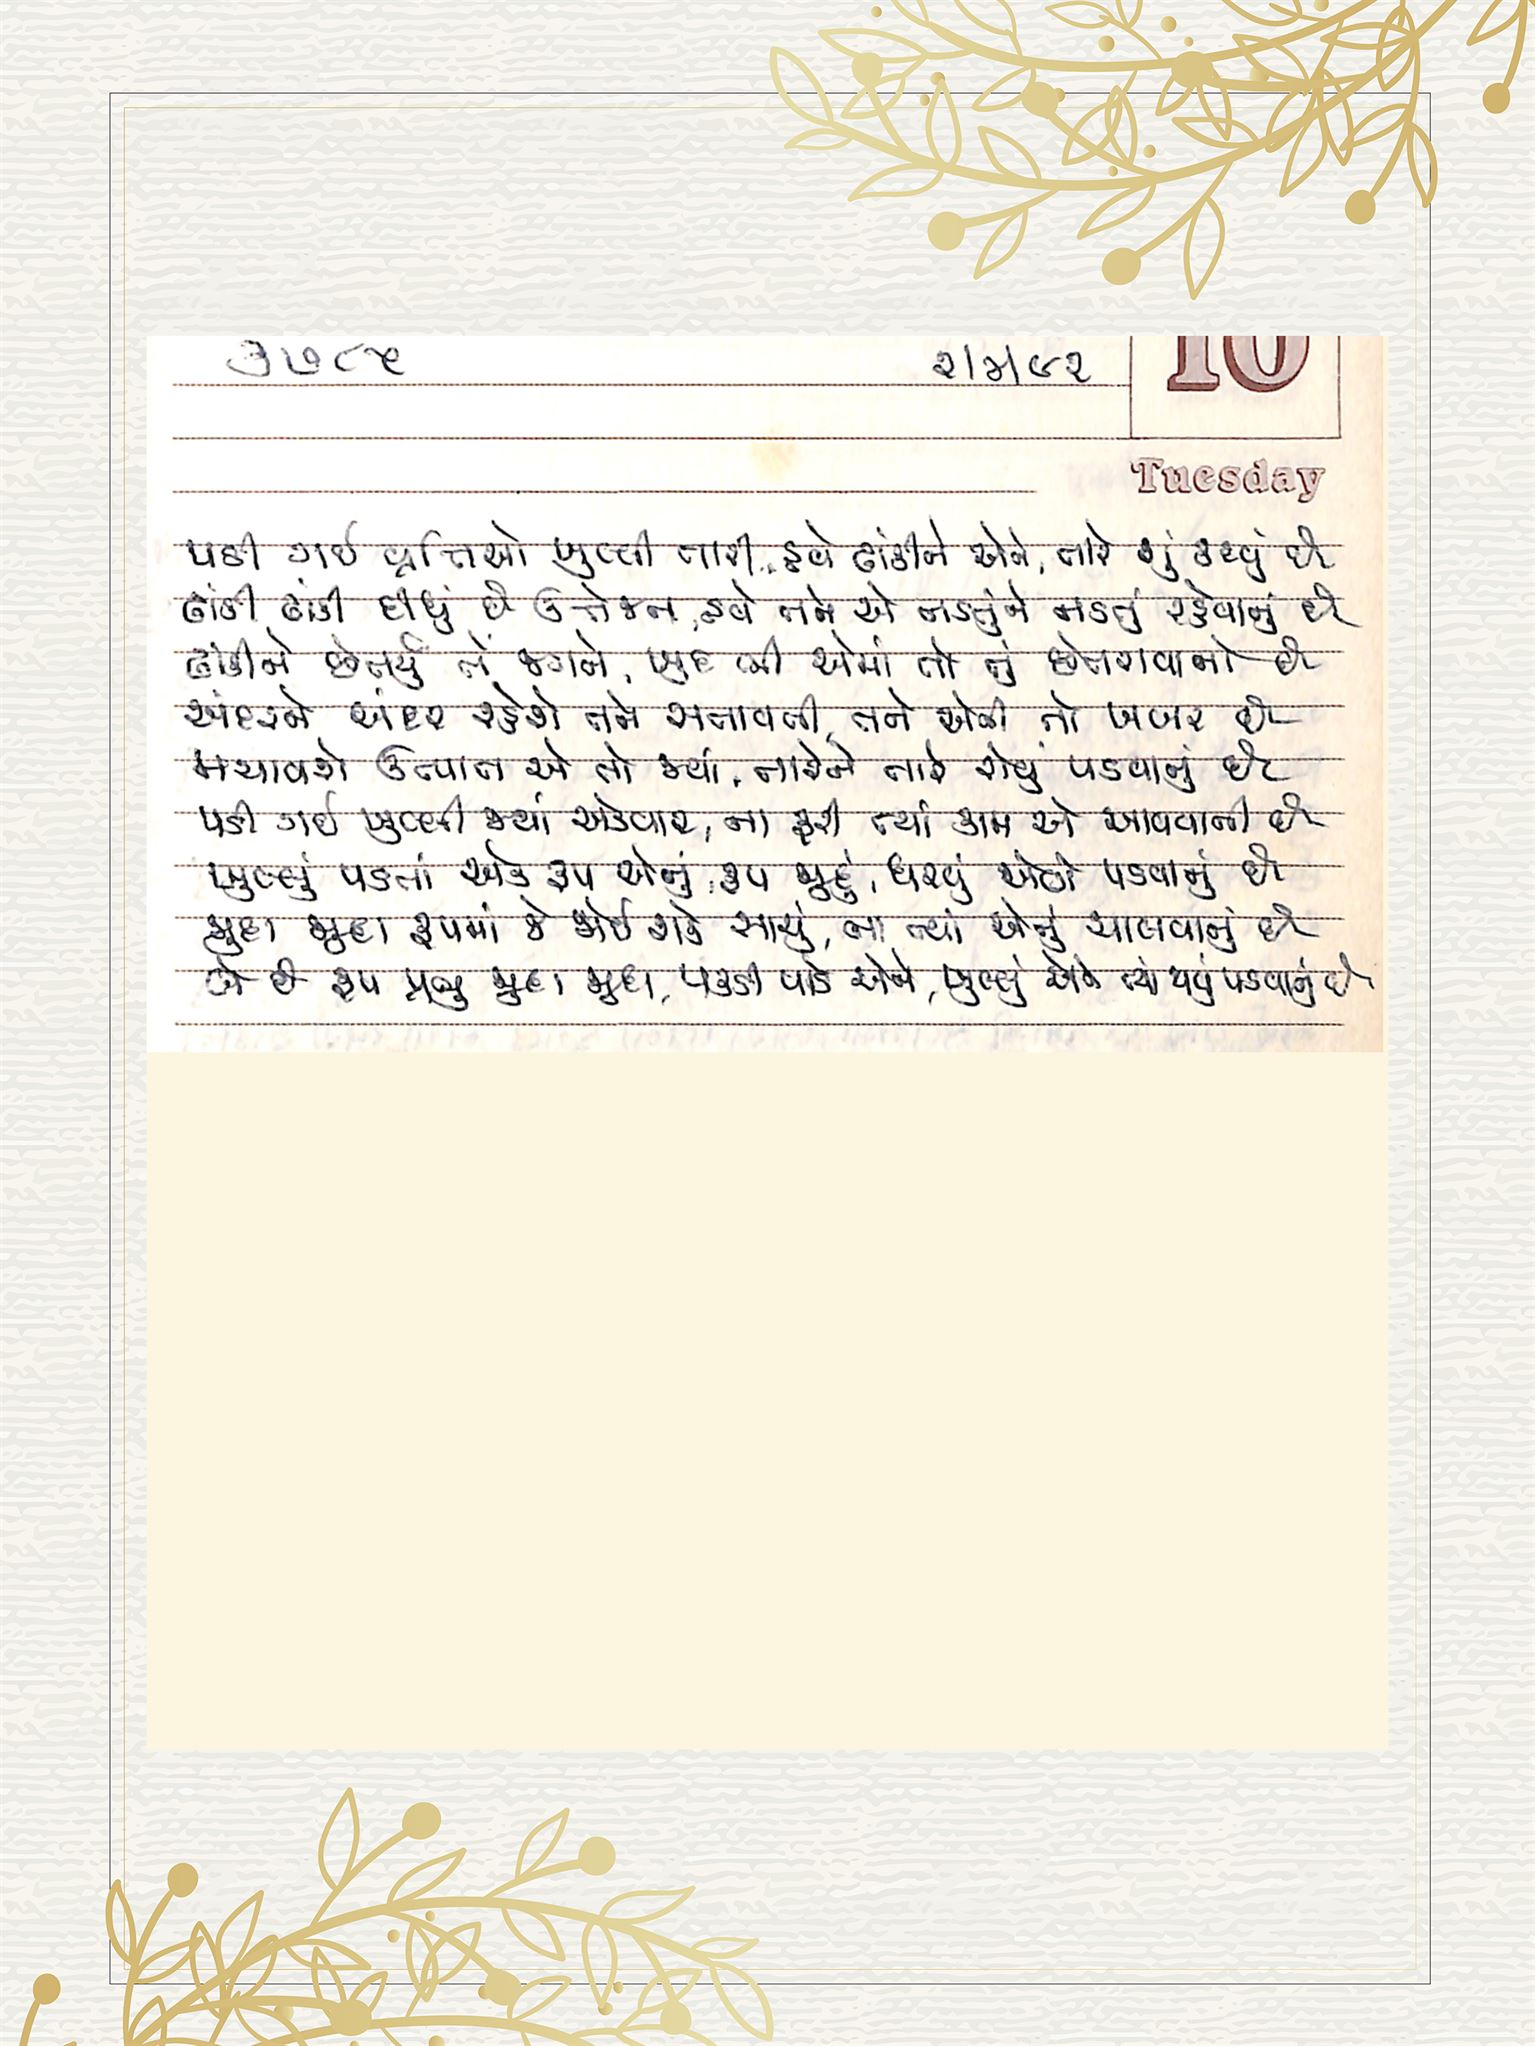 ૩૭૮૫ ૨/૪/૯૨ 10
Tuesday
પડી ગઈ વૃત્તિઓ ખુલ્લી તારી.. હવે ઢાંકીને એને, તારે શું કરવું છે
ઢાંકી ઢાંકી દીધું છે ઉત્તેજન, હવે તને એ નડતુંને નડતું રહેવાનું છે
ઢાંકીને છેતર્યું તેં જગને, ખુદ ભી એમાં તો તું છેતરાવાનો છે
અંદરને અંદર રહેશે તને સતાવતી, તને એની તો ખબર છે
મચાવશે ઉત્પાત એ તો ક્યાં, તારેને તારે શોધવું પડવાનું છે
પડી ગઈ ખુલ્લી જ્યાં એકવાર, ના ફરી ત્યાં કામ એ આવવાની છે
ખુલ્લું પડતાં એક રૂપ એનું, રૂપ જુદું, ધરવું એણે પડવાનું છે
જુદા જુદા રૂપમાં જે જોઈ શકે સાચું, ના ત્યાં એનું ચાલવાનું છે
જે છે રૂપ પ્રભુ જુદા જુદા, પકડી પાડે એને, ખુલ્લું એણે ત્યાં થવું પડવાનું છે